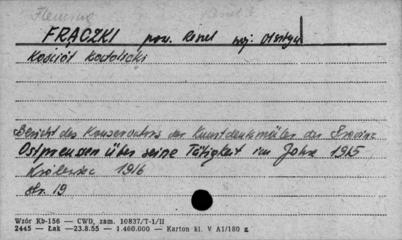 Fleming
FRĄCZKI pow. Reszel woj. Olsztyn
Kościół katolicki
Bericht des Konservators der Kunstdenkmäler der Provinz
Ostpreussen über seine Tätigkeit im Jahre 1915
Królewiec 1916
str. 19
Wzór Kb-156 — CWD, zam. 10837/T-1/II
2445 — Łak —23.8.55 — 1.460.000 — Karton kl. V A1/180 g